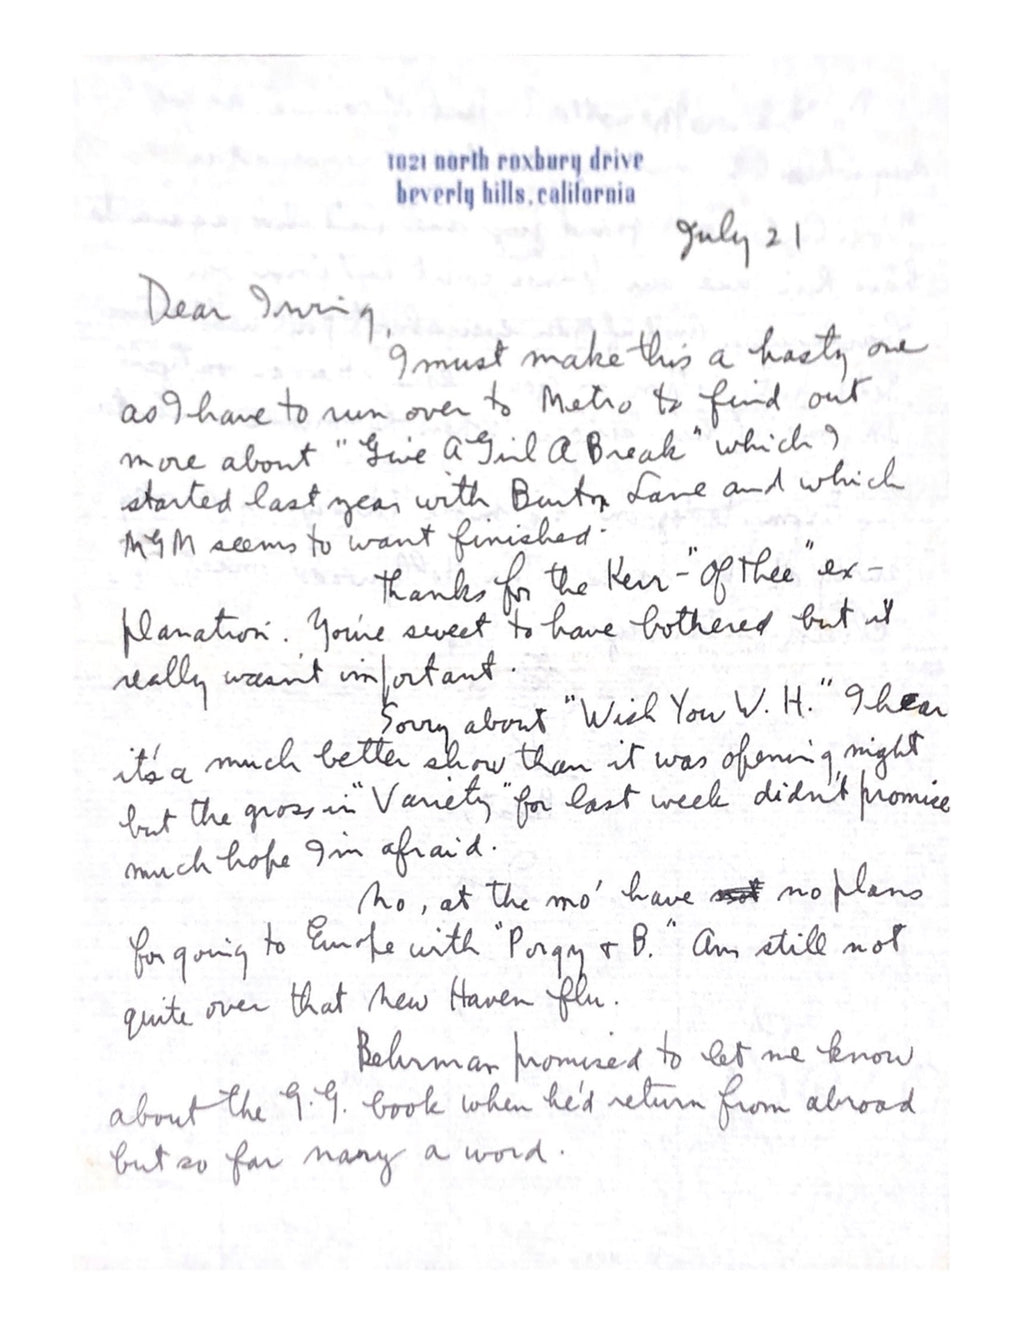 1021 north roxbury drive
beverly hills, california
July 21
Dear Irving,
I must make this a hasty one
as I have to run over to Metro to find out
more about "Give A Girl A Break" which I
started last year with Burton Lane and which
MGM seems to want finished.
Thanks for the Kerr-"Of Thee" ex-
planation. You're sweet to have bothered but it
really wasn't important.
Sorry about "Wish You W. H." I hear
it's a much better show than it was opening night
but the gross in "Variety" for last week didn't promise
much hope I'm afraid.
No, at the mo' have no plans
for going to Europe with "Porgy & B." Am still not
quite over that New Haven flu.
Behrman promised to let me know
about the G.G. book when he'd return from abroad
but so far nary a word.